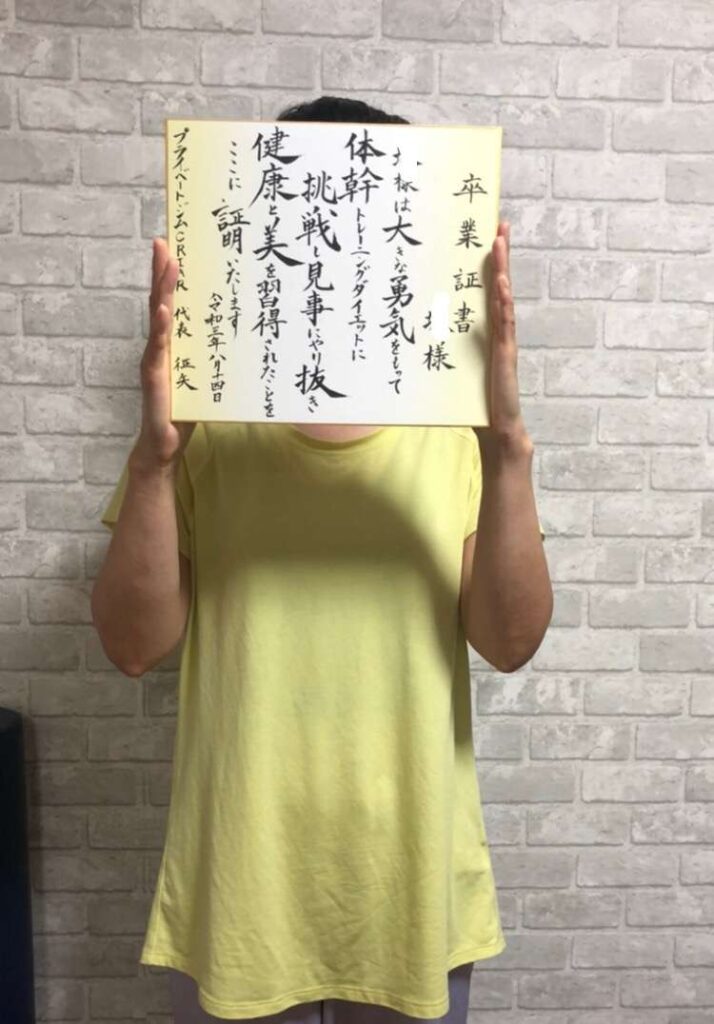 卒業証書
様
様は大きな勇気をもって
体幹トレーニングダイエットに
挑戦し見事にやり抜き
健康と美を習得されたことを
ここに証明いたします
令和三年八月十四日
プライベートジムCREAR 代表 征矢